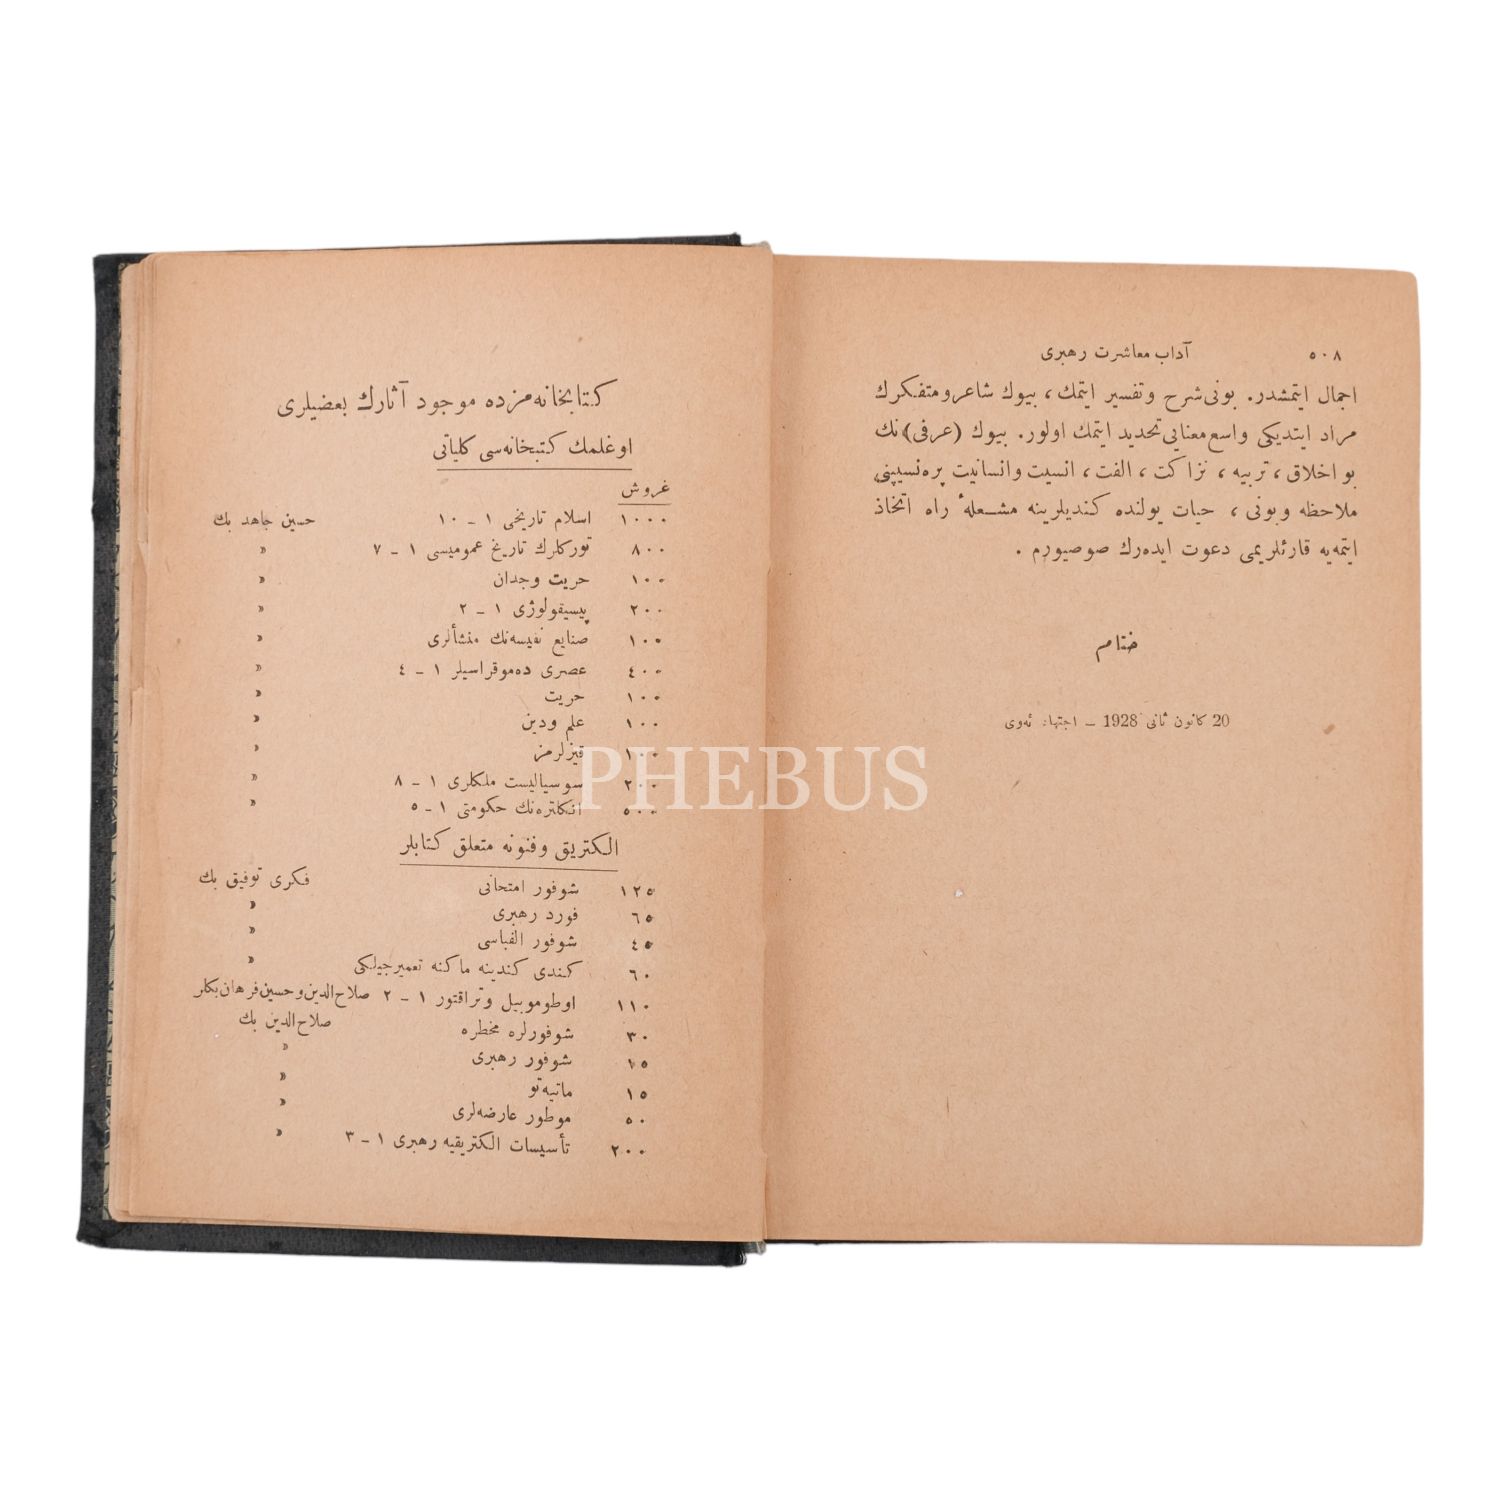 ٥٠٨ آداب معاشرت رهبری
اجمال ایتمشدر. بونی شرح وتفسیر ایتمك، بیوك شاعر ومتفكرك
مراد ایتدیكی واسع معنایی تحدید ایتمك اولور. بیوك (عرفی) نك
بو اخلاق، تربیه، نزاكت، الفت، انسیت وانسانیت پره‌نسیپنی
ملاحظه وبونی، حیات یولنده كندیلرینه مشعلهٔ راه اتخاذ
ایتمه‌یه قارئلریمی دعوت ایده‌رك صوصیورم.
ختام
20 كانون ثانی 1928 – اجتهاد ئه‌وی
كتابخانه‌مزده موجود آثارك بعضیلری
اوغلمك كتبخانه‌سی كلیاتی
غروش
١٠٠٠ اسلام تاریخی ١ - ١٠ حسین جاهد بك
٨٠٠ توركلرك تاریخ عمومیسی ١ - ٧ »
١٠٠ حریت وجدان »
٢٠٠ پیسیقولوژی ١ - ٢ »
١٠٠ صنایع نفیسه‌نك منشألری »
٤٠٠ عصری ده‌موقراسیلر ١ - ٤ »
١٠٠ حریت »
١٠٠ علم ودین »
١٠٠ قیزلرمز »
٢٠٠ سوسیالیست ملكلری ١ - ٨ »
٥٠٠ انكلتره‌نك حكومتی ١ - ٥ »
الكتریق وفنونه متعلق كتابلر
١٢٥ شوفور امتحانی فكری توفیق بك
٦٥ فورد رهبری »
٤٥ شوفور الفباسی »
٦٠ كندی كندینه ماكنه تعمیرجیلكی »
١١٠ اوطوموبیل وتراقتور ١ - ٢ صلاح‌الدین وحسین فرهان بكلر
٣٠ شوفورلره مخطره صلاح‌الدین بك
١٥ شوفور رهبری »
١٥ مانیه‌تو »
٥٠ موطور عارضه‌لری »
٢٠٠ تأسیسات الكتریقیه رهبری ١ - ٣ »
PHEBUS